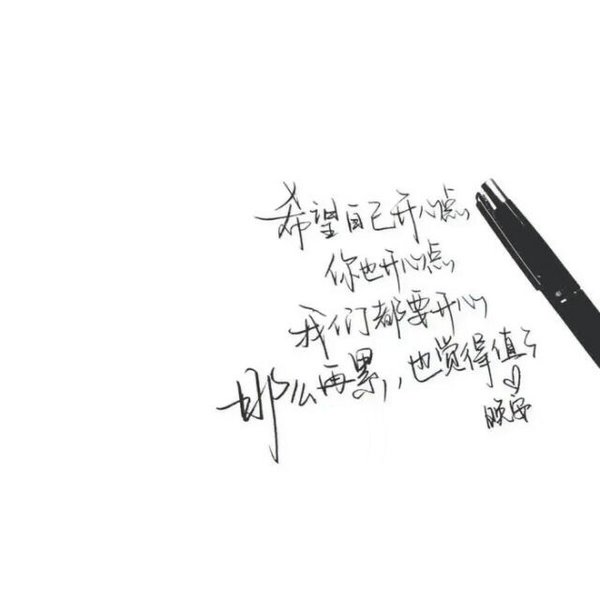 希望自己开心点
你也开心点
我们都要开心
那么再累，也觉得值了
顺安